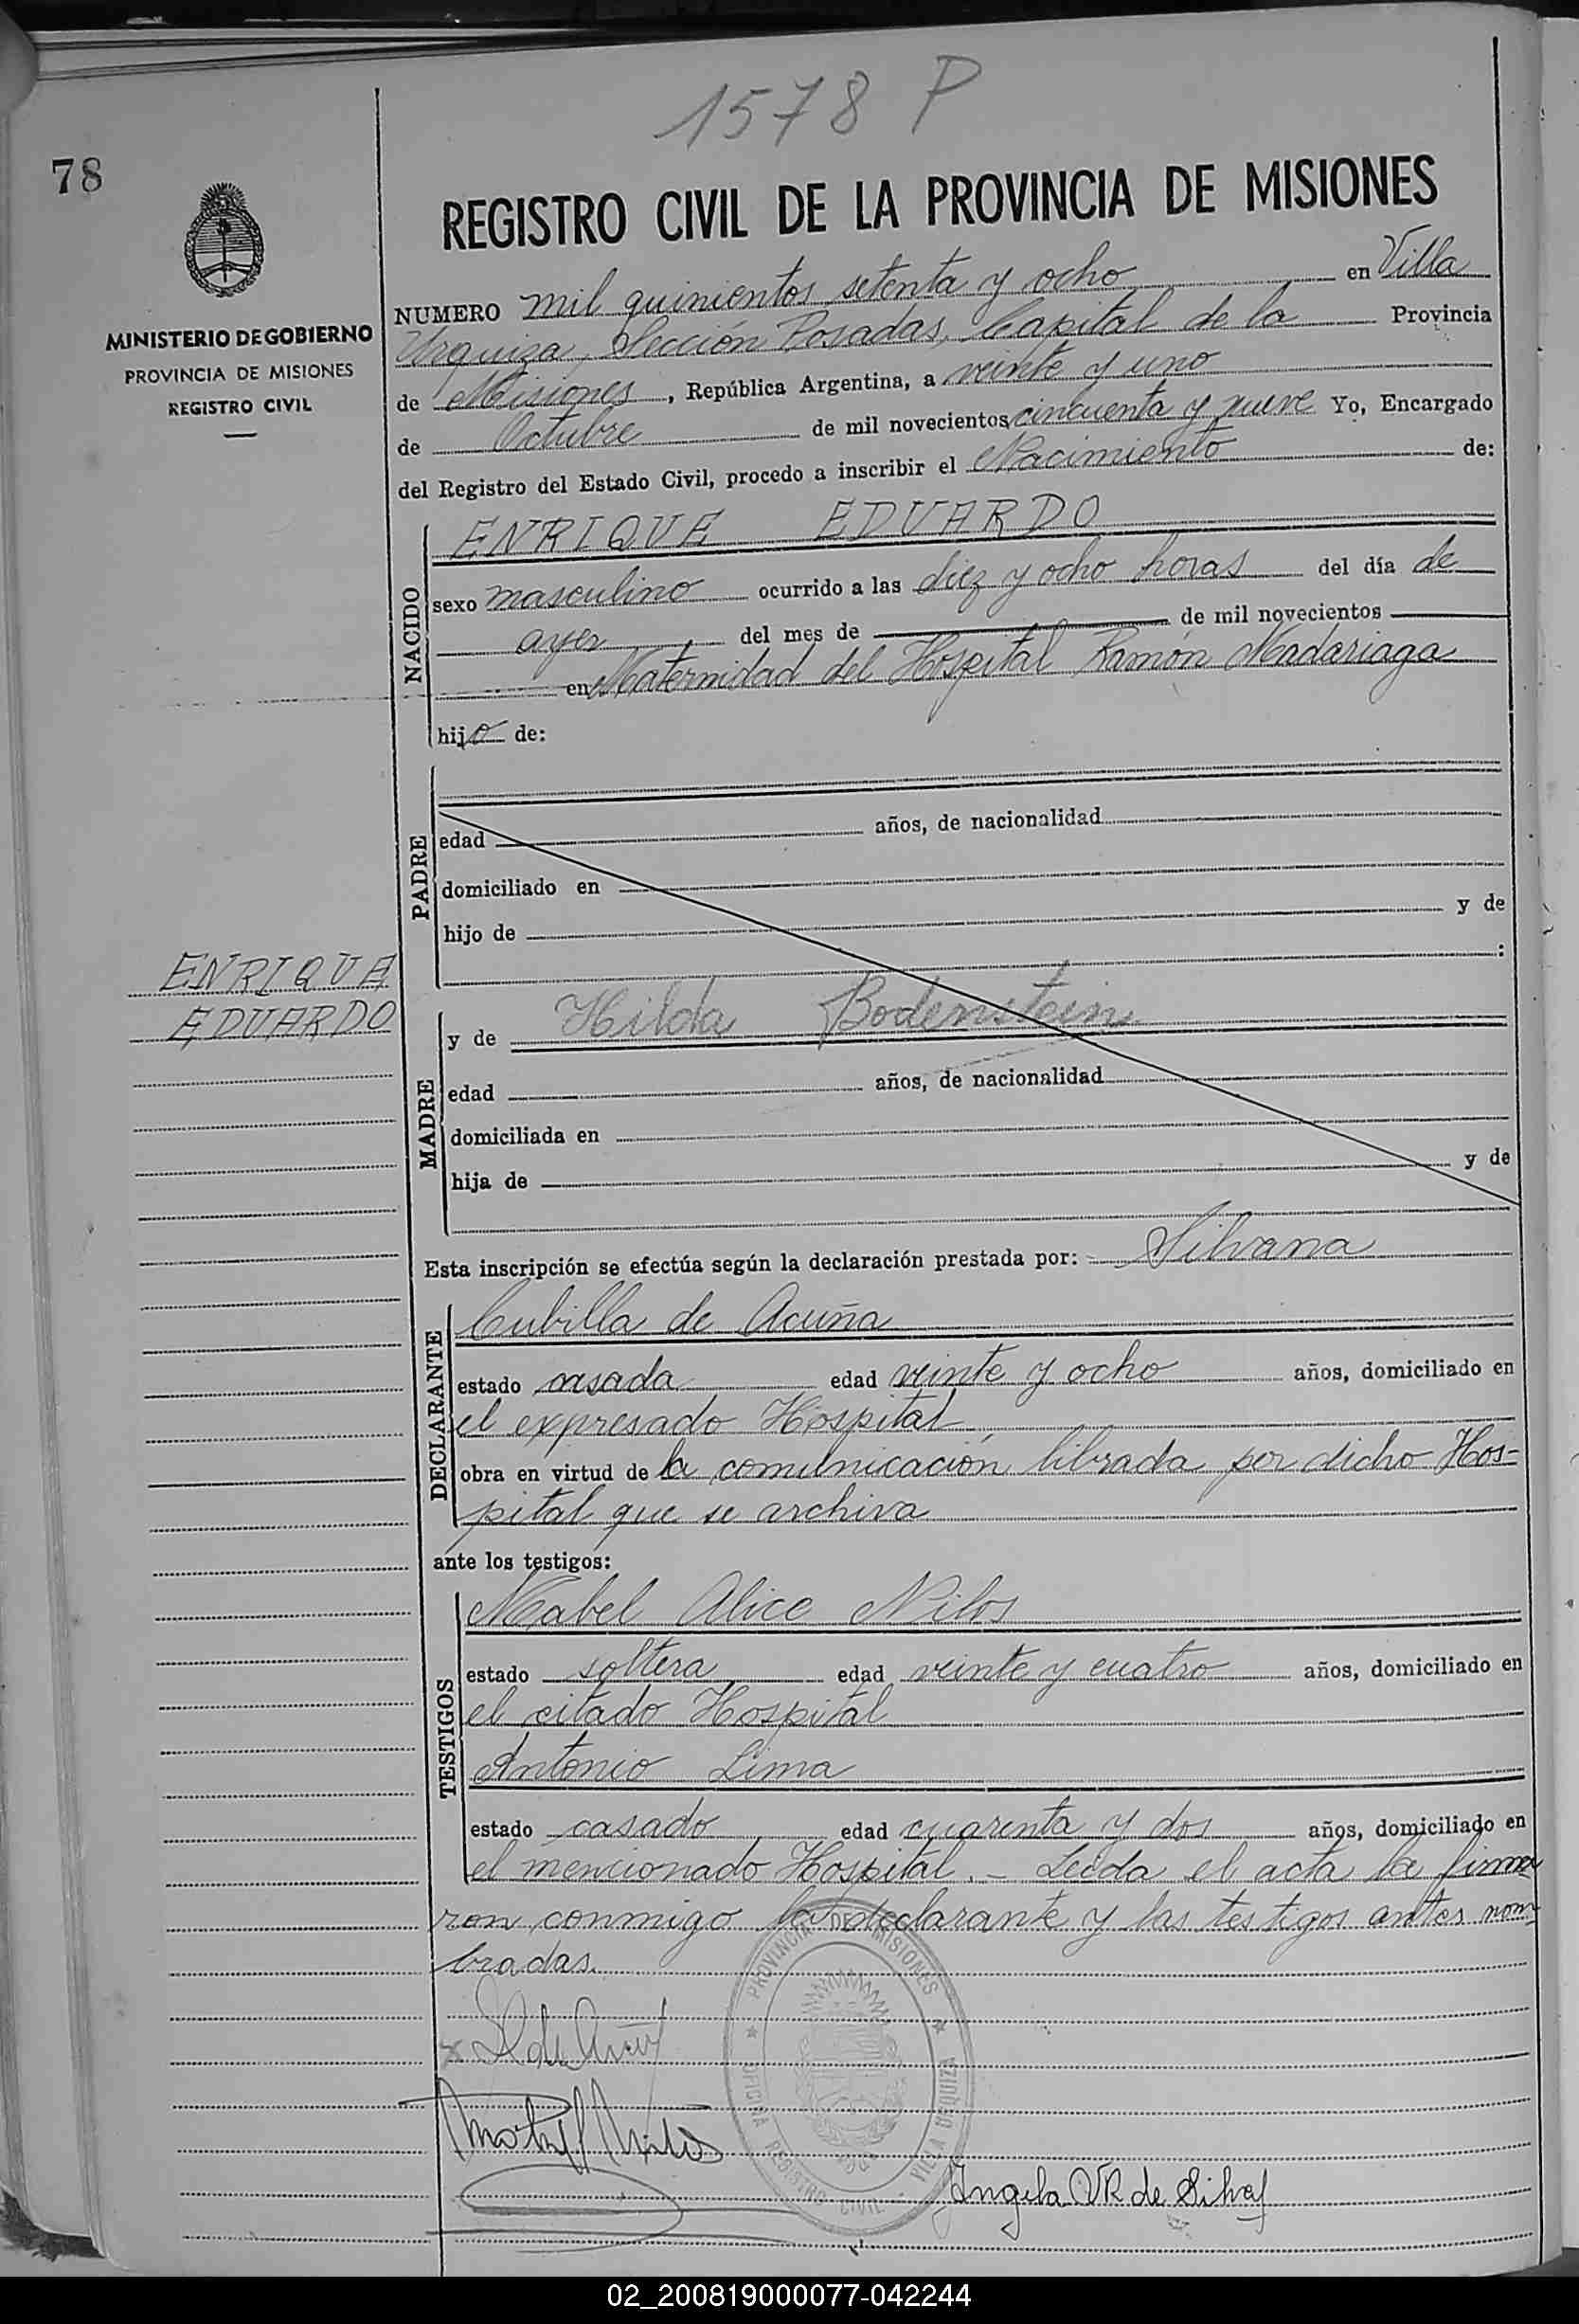 1578 P
78
REGISTRO CIVIL DE LA PROVINCIA DE MISIONES
MINISTERIO DE GOBIERNO
PROVINCIA DE MISIONES
REGISTRO CIVIL
NUMERO mil quinientos setenta y ocho en Villa
Urquiza, Sección Posadas, Capital de la Provincia
de Misiones, República Argentina, a veinte y uno
de Octubre de mil novecientos cincuenta y nueve Yo, Encargado
del Registro del Estado Civil, procedo a inscribir el Nacimiento de:
NACIDO
ENRIQUE EDUARDO
sexo masculino ocurrido a las diez y ocho horas del día de
ayer del mes de de mil novecientos
en Maternidad del Hospital Ramón Madariaga
hijo de:
PADRE
edad años, de nacionalidad
domiciliado en
hijo de y de
:
ENRIQUE
EDUARDO
MADRE
y de Hilda Bodenstein
edad años, de nacionalidad
domiciliada en
hija de y de
Esta inscripción se efectúa según la declaración prestada por: Silvana
DECLARANTE
Cubilla de Acuña
estado casada edad veinte y ocho años, domiciliado en
el expresado Hospital
obra en virtud de la comunicación librada por dicho Hos-
pital que se archiva
ante los testigos:
TESTIGOS
Mabel Alice Nilos
estado soltera edad veinte y cuatro años, domiciliado en
el citado Hospital
Antonio Lima
estado casado edad cuarenta y dos años, domiciliado en
el mencionado Hospital. - Leída el acta la firma
ron conmigo la declarante y las testigos antes nom
bradas.
PROVINCIA DE MISIONES
OFICINA REGISTRO CIVIL - VILLA URQUIZA
S de Acuña
Mabel Nilos
Angela VR de Silva
02_200819000077-042244